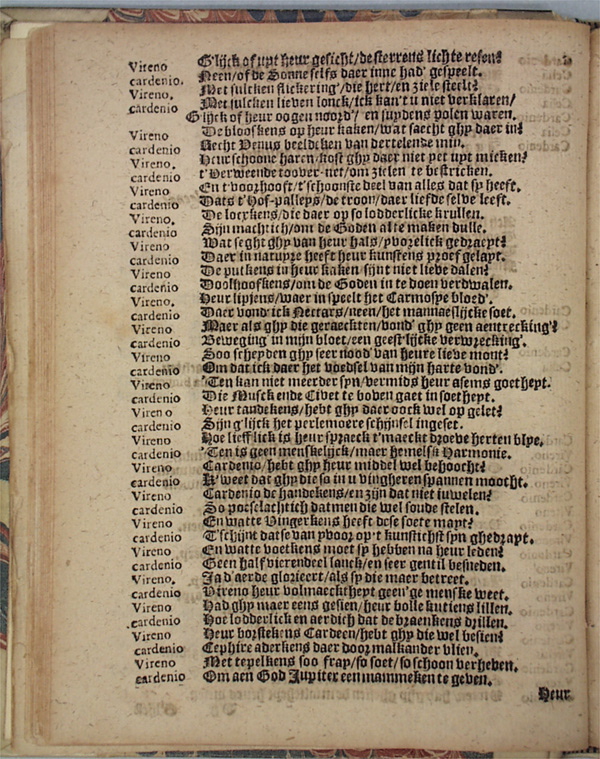 Vireno G'lijck of upt heur gesicht/de sterrens lichte resen?
cardenio. Neen/of de Sonne selfs daer inne had' gespeelt.
Vireno. Met sulcken flickering'/die hert/en ziele steelt?
cardenio Met sulcken lieven lonck/ick kan't u niet verklaren/
Gelijck of heur oogen noord'/ en suydens polen waren.
Vireno De blooskens op heur kaken/wat saecht ghy daer in?
cardenio Recht Venus beeldeken van dertelende min.
Vireno. Heur schoone haren/kost ghy daer niet yet upt micken?
cardenio t'Verweende toover-net/om zielen te bestricken.
Vireno En t'voorhooft/t'schoonste deel van alles dat sy heeft.
cardenio Dats t'Hof-palleys/de troon/daer liefde selve leeft.
Vireno. De lockkens/die daer op so lodderlicke krullen.
cardenio Sijn machtich/om de Goden al te maken dulle.
Vireno Wat seght ghy van heur hals/yvorelick gedraeyt?
cardenio Daer in natuyre heeft heur kunstens proef gelayt.
Vireno De putkens in heur kaken sijnt niet lieve dalen?
cardenio Doolhoofkens/om de Goden in te doen verdwalen.
Vireno. Heur lipiens/waer in speelt het Carmosye bloed'.
cardenio Daer vond' ick Nectars/neen/het mannaeslijcke soet.
Vireno Maer als ghy die geraeckten/vond' ghy geen aentrecking'?
cardenio Beweging' in mijn bloet/een geest'lijcke verwrecking'.
Vireno Soo scheyden ghy seer nood' van heure lieve mont?
cardenio Om dat ick daer het voedsel van mijn harte vond'.
Vireno 'Ten kan niet meerder syn/vermids heur asems goetheyt.
cardenio Die Musckende Civet te boven gaet in soetheyt.
Vireno Heur tandekens/hebt ghy daer oock wel op gelet?
cardenio Sijn g'lijck het perlemoere schijnsel ingeset.
Vireno Hoe lieff'lick is heur spraeck t'maeckt droeve herten blye.
cardenio 'Ten is geen menskelijck/maer hemelsn Harmonie.
Vireno Cardenio/hebt ghy heur middel wel behoocht?
cardenio K'weet dat ghy die so in u vingheren spannen moocht.
Vireno Cardenio de handekens/en zijn dat niet iuwelen?
cardenio So poeselachtich datmen die wel soude stelen.
Vireno En watte Vingerkens heeft dese soete mayt?
cardenio T'schijnt datse van yvoor op't kunstichst syn ghedrayt.
Vireno En watte voetkens moet sy hebben na heur leden?
cardenio Geen half vierendeel lanck/en seer gentil besneden.
Vireno. Ja d'aerde glorieert/als sy die maer betreet.
cardenio Vireno heur volmaecktheyt geen'ge menske weet.
Vireno Had ghy maer eens gesien/heur bolle kutiens lillen.
cardenio Hoe lodderlick en aerdich dat de braenkens drillen.
Vireno Heur borstekens Cardeen/hebt ghy die wel besien?
cardenio Cephire aderkens daer door malkander vlien.
Vireno Met tepelkens soo fray/so soet/so schoon verheven.
cardenio Om aen God Jupiter een mammeken te geven.
Heur